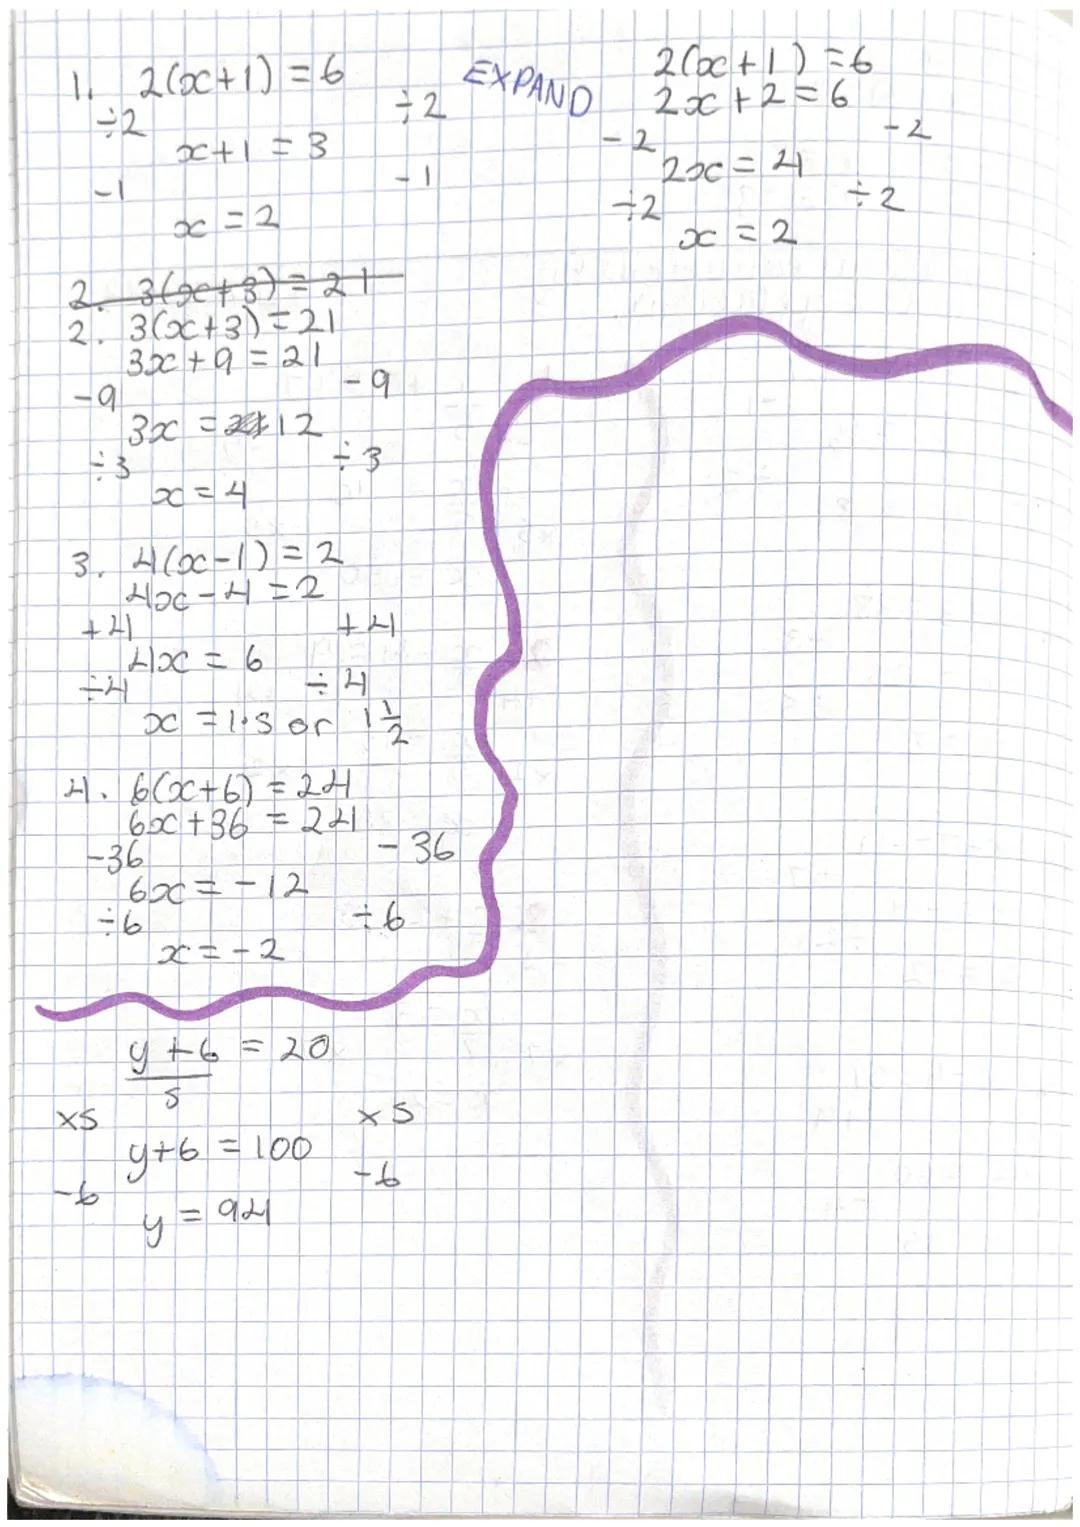 1. 2(x+1) = 6
÷2 ÷2
x+1 = 3
-1 -1
x = 2
EXPAND
2(x+1) = 6
2x+2 = 6
-2 -2
2x = 4
÷2 ÷2
x = 2
2. 3(x+3) = 21
2. 3(x+3) = 21
3x+9 = 21
-9 -9
3x = 12
÷3 ÷3
x = 4
3. 4(x-1) = 2
4x-4 = 2
+4 +4
4x = 6
÷4 ÷4
x = 1.5 or 1 1/2
4. 6(x+6) = 24
6x+36 = 24
-36 -36
6x = -12
÷6 ÷6
x = -2
y+6 = 20
5
x5 x5
y+6 = 100
-6 -6
y = 94